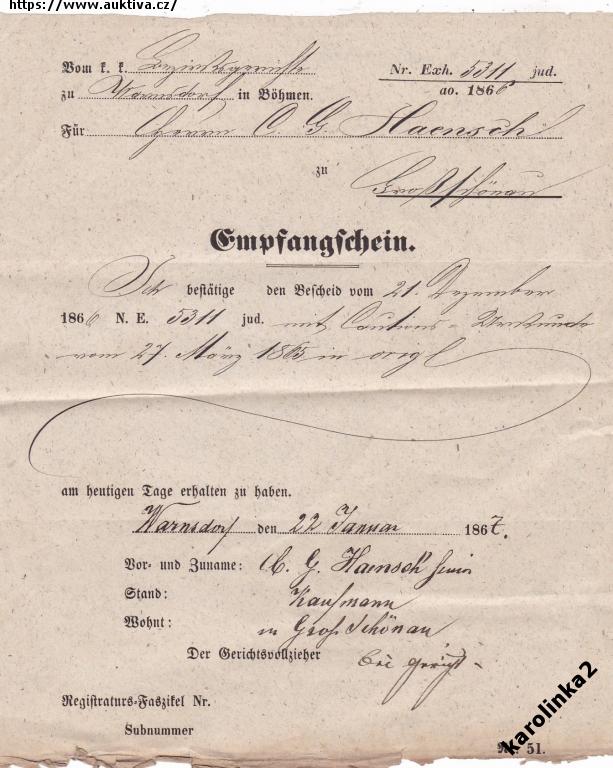 https://www.auktiva.cz/
Vom k. k. Bezirksgerichte
Nr. Exh. 5311 jud.
zu Warnsdorf in Böhmen.
ao. 1866
Für Herrn C G Haensch
zu
Großschönau
Empfangschein.
Ich bestätige den Bescheid vom 21. Dezember
1866 N. E. 5311 jud. mit Cautions-Urkunde
vom 27. März 1865 in orgl
am heutigen Tage erhalten zu haben.
Warnsdorf den 22 Januar 1867.
Vor- und Zuname: C. G. Haensch
Stand: Kaufmann
Wohnt: in Gros Schönau
Der Gerichtsvollzieher bei Gericht
Registraturs-Faszikel Nr.
Subnummer
Nr. 51.
karolinka2